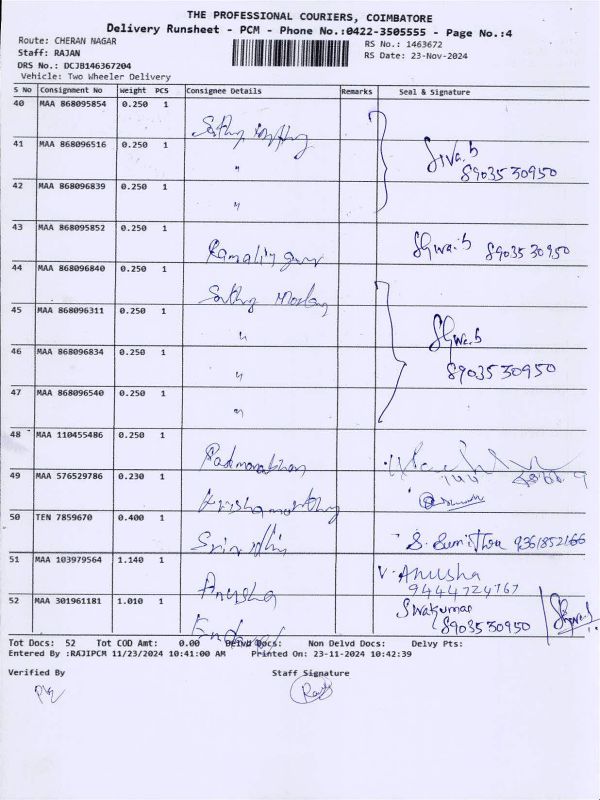 THE PROFESSIONAL COURIERS, COIMBATORE
Delivery Runsheet - PCM - Phone No.:0422-3505555 - Page No.:4
Route: CHERAN NAGAR
RS No.: 1463672
Staff: RAJAN
RS Date: 23-Nov-2024
DRS No.: DCJB146367204
Vehicle: Two Wheeler Delivery
S No Consignment No Weight PCS Consignee Details Remarks Seal & Signature
40 MAA 868095854 0.250 1
41 MAA 868096516 0.250 1
" 8903530950
42 MAA 868096839 0.250 1
"
43 MAA 868095852 0.250 1
8903530950
44 MAA 868096840 0.250 1
45 MAA 868096311 0.250 1
"
46 MAA 868096834 0.250 1
" 8903530950
47 MAA 868096540 0.250 1
"
48 MAA 110455486 0.250 1
49 MAA 576529786 0.230 1
Krishamorthy
50 TEN 7859670 0.400 1
S. Sumithra 9361852166
51 MAA 103979564 1.140 1
Anusha V. Anusha
9444724767
52 MAA 301961181 1.010 1
Sivakumar
8903530950
Tot Docs: 52 Tot COD Amt: 0.00 Delvd Docs: Non Delvd Docs: Delvy Pts:
Entered By :RAJIPCM 11/23/2024 10:41:00 AM Printed On: 23-11-2024 10:42:39
Verified By Staff Signature